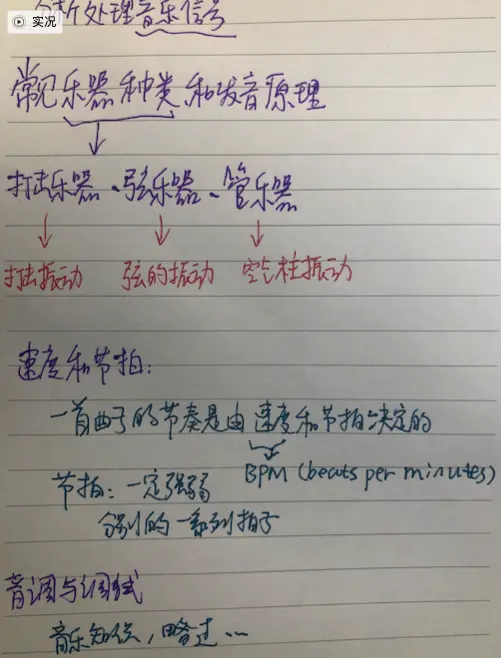 实况
分析处理音乐信号
常见乐器种类和发音原理
打击乐器、弦乐器、管乐器
打击振动 弦的振动 空气柱振动
速度和节拍:
一首曲子的节奏是由速度和节拍决定的
BPM (beats per minutes)
节拍: 一定强弱
分别的一系列拍子
音调与调式
音乐知识,略过...